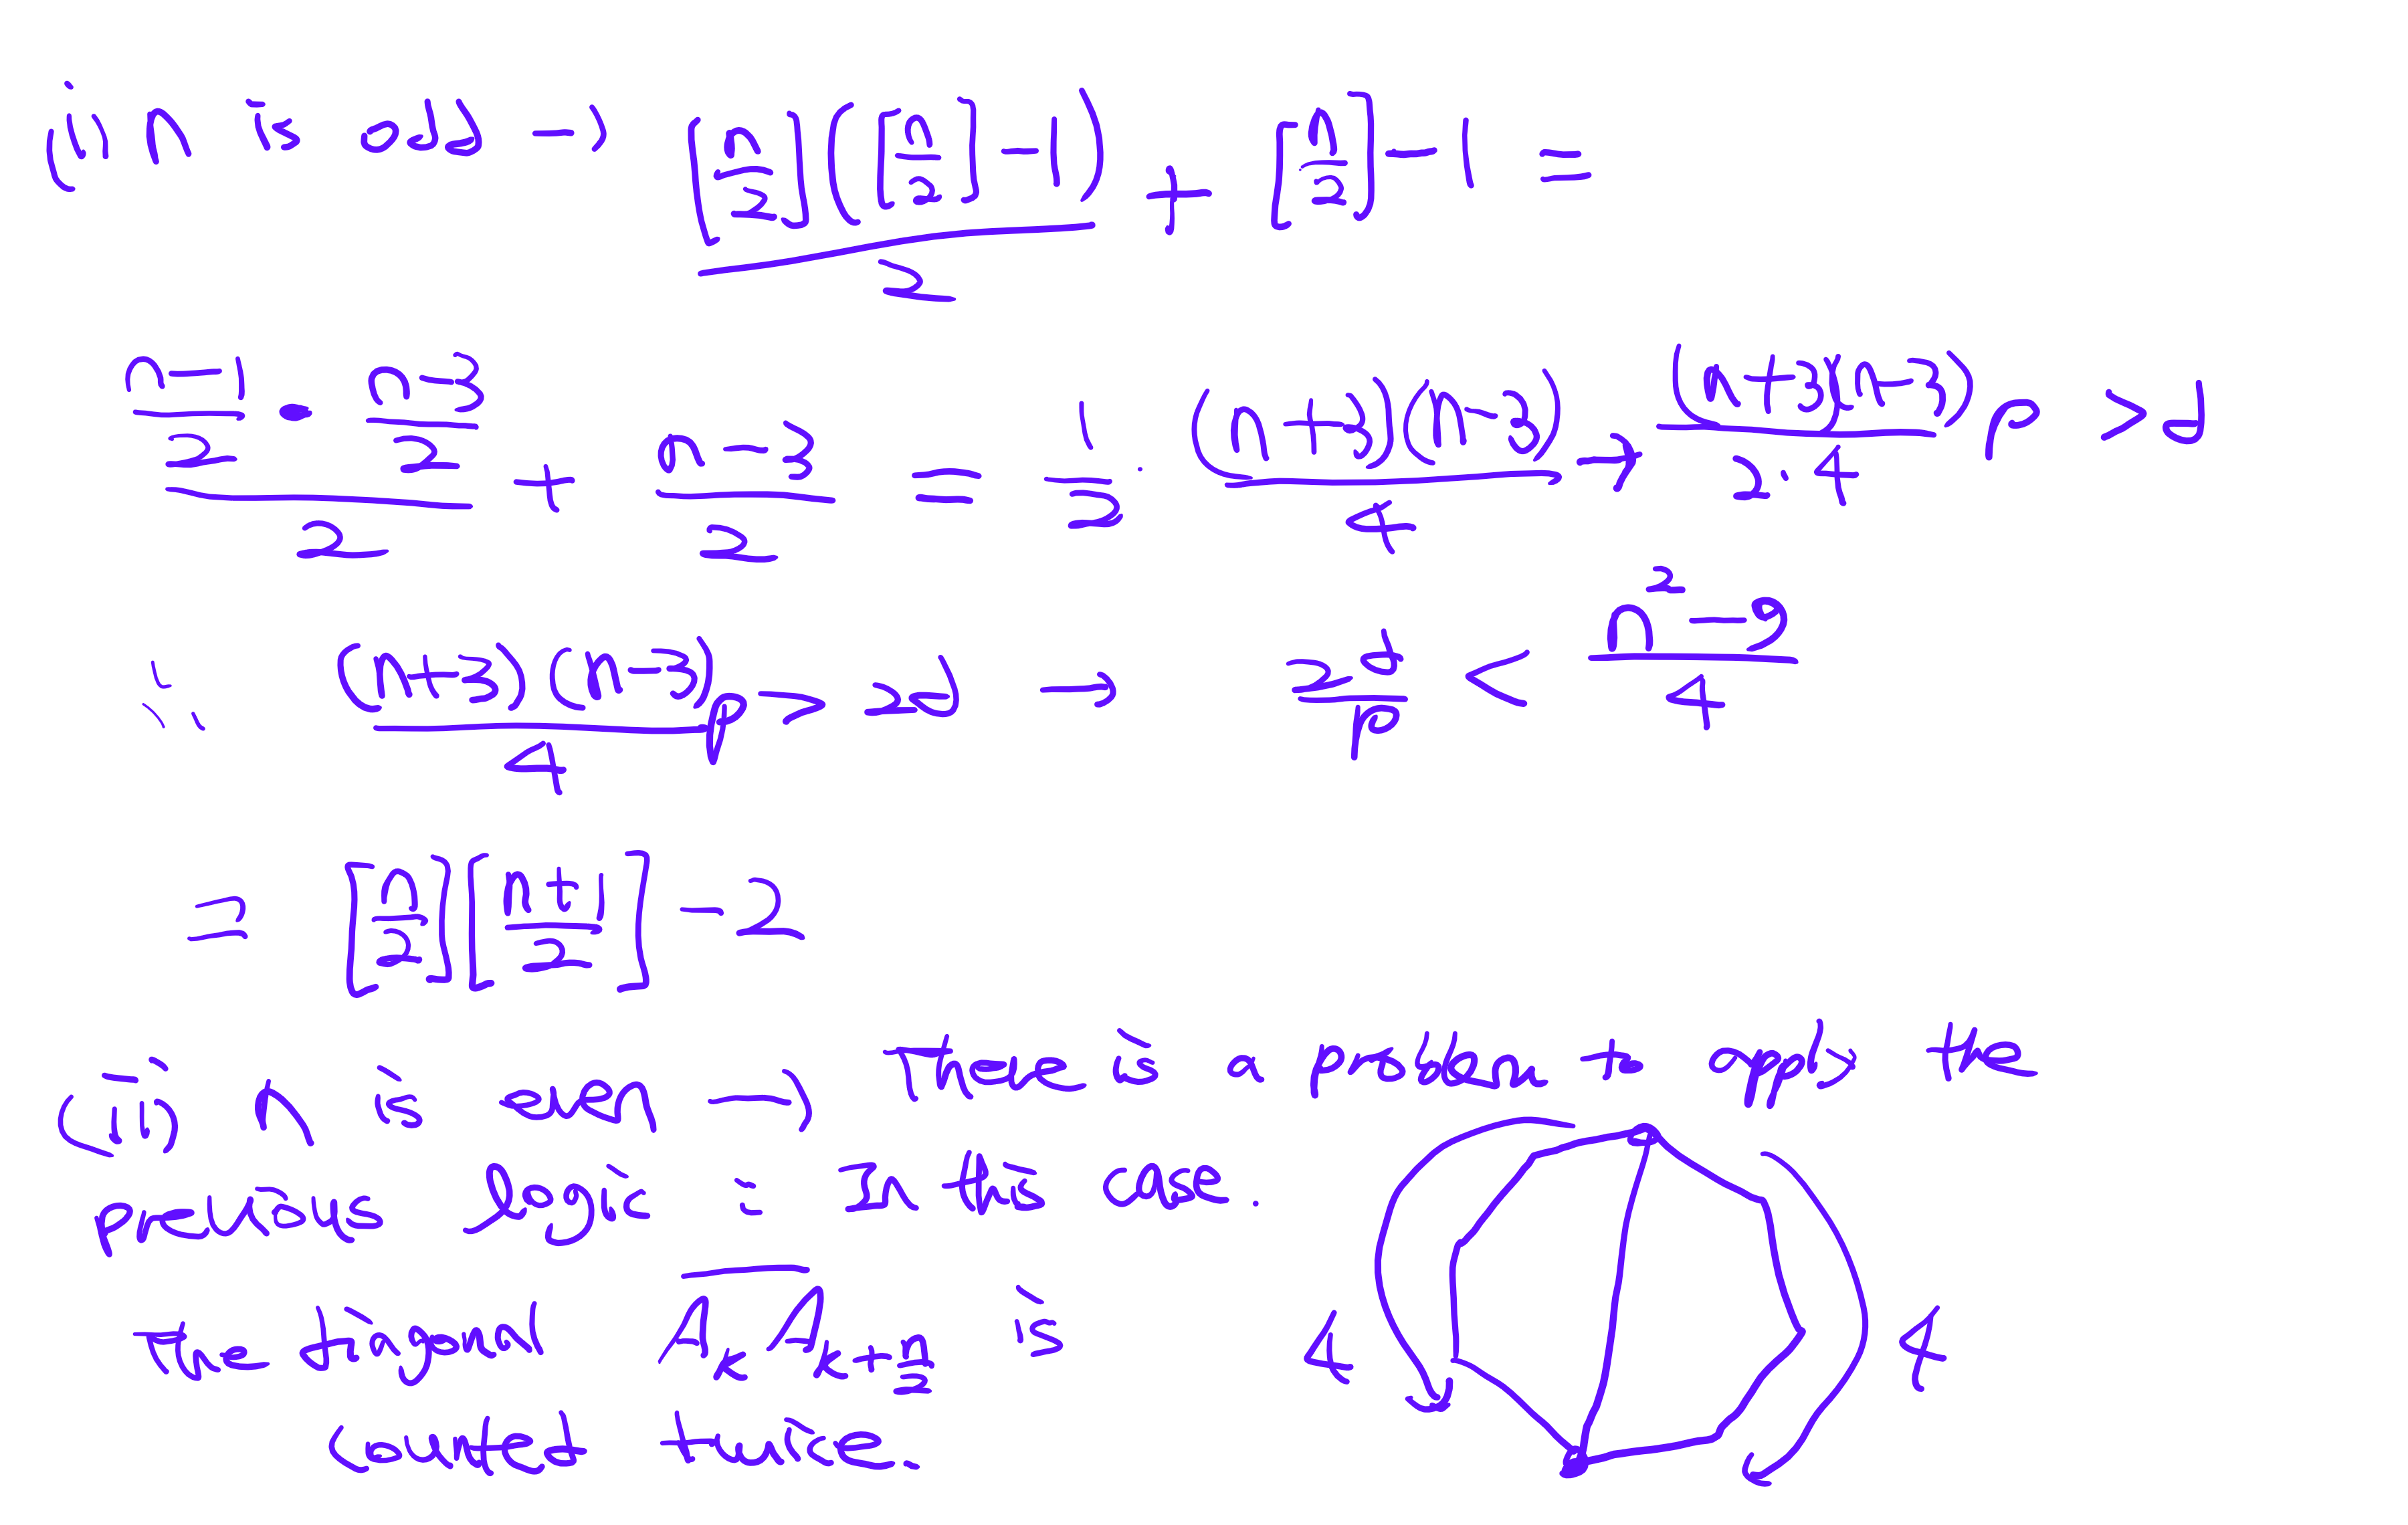 (i) n is odd → [n/2]([n/2]-1)/2 + [n/2]-1 =
((n-1)/2 · (n-3)/2)/2 + (n-3)/2 = 1/2 · (n+3)(n-3)/4 → (n+3)(n-3)/(2·4) p > d
∴ (n+3)(n-3)/4 p > 2d → 2d/p < (n²-9)/4
= [n/2][(n+1)/2] - 2
(ii) n is even → There is a problem to apply the
previous logic : In this case.
The diagonal A_k A_{k+n/2} is
counted twice.
4 4